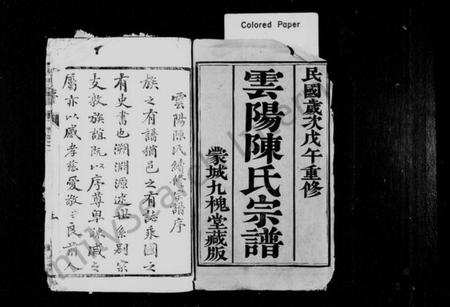 Colored Paper
民國歲次戊午重修
雲陽陳氏宗譜
蒙城九槐堂藏版
雲陽陳氏續修宗譜序
族之有譜猶邑之有誌國之
有史書也溯淵源迄世系別宗
支敦族誼既以序尊卑
屬亦以感孝慈愛敬之良前人